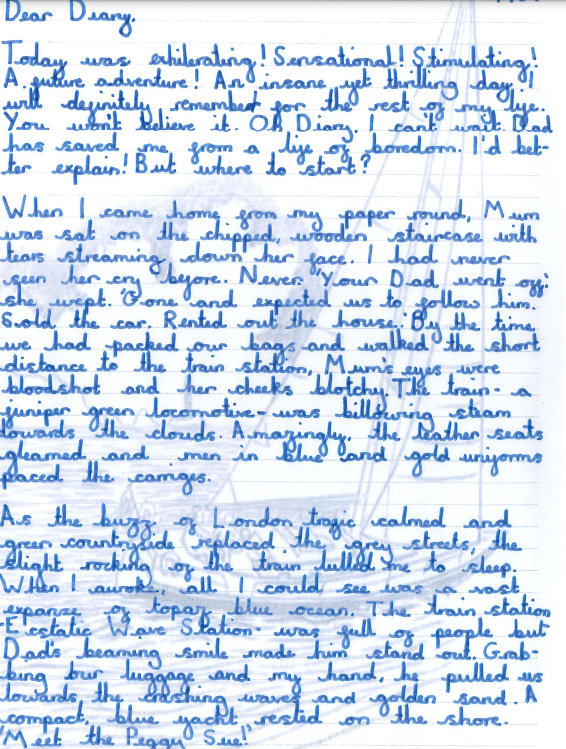 Dear Diary,
Today was exhilerating! Sensational! Stimulating!
A future adventure! An insane yet thrilling day I
will definitely remember for the rest of my life.
You won't believe it. Oh Diary, I can't wait. Dad
has saved me from a life of boredom. I'd bet-
ter explain! But where to start?
When I came home from my paper round, Mum
was sat on the chipped, wooden staircase with
tears streaming down her face. I had never
seen her cry before. Never. 'Your Dad went off.'
she wept. 'Gone and expected us to follow him.
Sold the car. Rented out the house.' By the time
we had packed our bags and walked the short
distance to the train station, Mum's eyes were
bloodshot and her cheeks blotchy. The train - a
juniper green locomotive - was billowing steam
towards the clouds. Amazingly, the leather seats
gleamed and men in blue and gold uniforms
paced the carriges.
As the buzz of London traffic calmed and
green countryside replaced the grey streets, the
slight rocking of the train lulled me to sleep.
When I awoke, all I could see was a vast
expanse of topaz blue ocean. The train station
-Ecstatic Wave Station- was full of people but
Dad's beaming smile made him stand out. Grab-
bing our luggage and my hand, he pulled us
towards the crashing waves and golden sand. A
compact, blue yacht rested on the shore.
'Meet the Peggy Sue!'